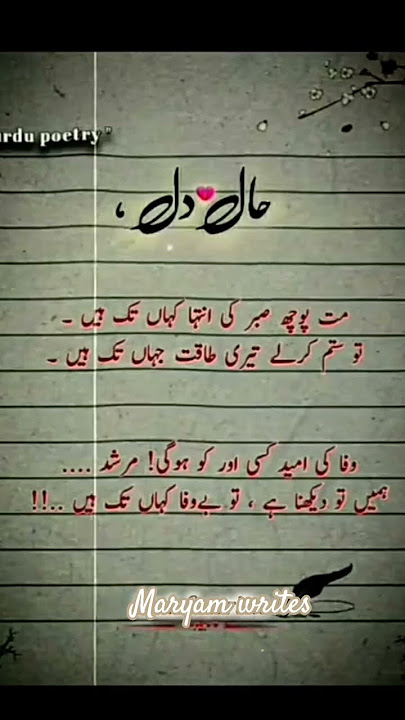 urdu poetry"
حال دل ،
مت پوچھ صبر کی انتہا کہاں تک ہیں ۔
تو ستم کرلے تیری طاقت جہاں تک ہیں ۔
وفا کی امید کسی اور کو ہوگی! مرشد ....
ہمیں تو دیکھنا ہے ، تو بےوفا کہاں تک ہیں ..!!
Maryam writes